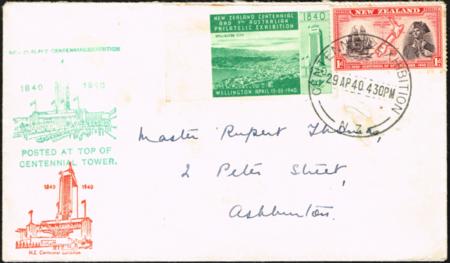 NEW ZEALAND CENTENNIAL EXHIBITION
1840 1940
POSTED AT TOP OF
CENTENNIAL TOWER.
1840 1940
N.Z. Centennial Exhibition
NEW ZEALAND CENTENNIAL
PHILATELIC EXHIBITION
1840
WELLINGTON APRIL 1940
NEW ZEALAND
1d 1d
CENTENNIAL EXHIBITION
29 AP 40 430PM
N.Z.
Master Rupert
2 Peter Street,
Ashburton.